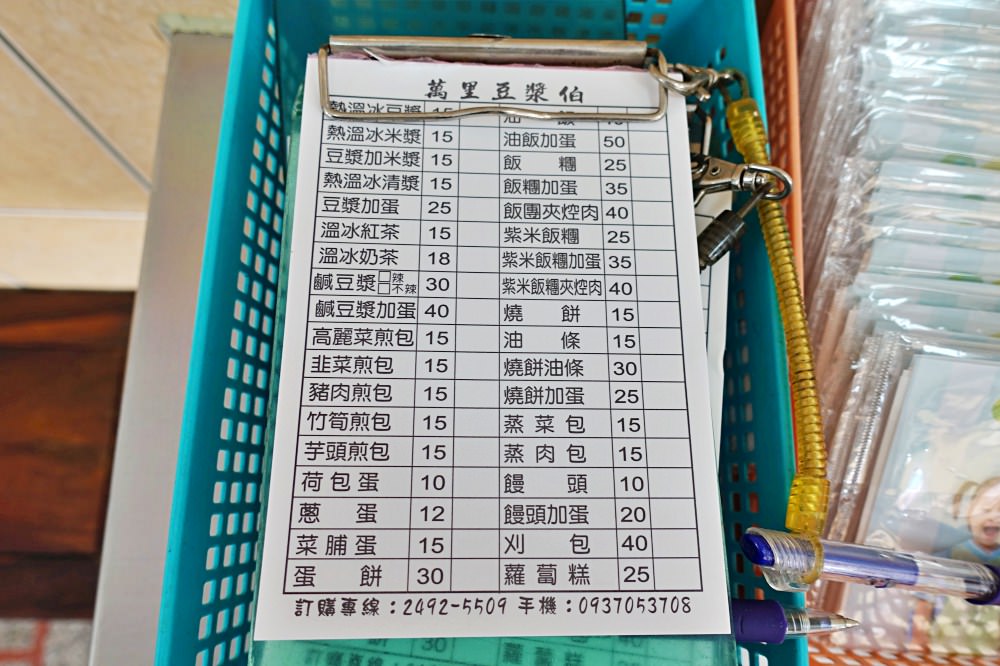 萬里豆漿伯
熱溫冰豆漿 15 油飯
熱溫冰米漿 15 油飯加蛋 50
豆漿加米漿 15 飯糰 25
熱溫冰清漿 15 飯糰加蛋 35
豆漿加蛋 25 飯團夾焢肉 40
溫冰紅茶 15 紫米飯糰 25
溫冰奶茶 18 紫米飯糰加蛋 35
鹹豆漿 □辣 □不辣 30 紫米飯糰夾焢肉 40
鹹豆漿加蛋 40 燒餅 15
高麗菜煎包 15 油條 15
韭菜煎包 15 燒餅油條 30
豬肉煎包 15 燒餅加蛋 25
竹筍煎包 15 蒸菜包 15
芋頭煎包 15 蒸肉包 15
荷包蛋 10 饅頭 10
蔥蛋 12 饅頭加蛋 20
菜脯蛋 15 刈包 40
蛋餅 30 蘿蔔糕 25
訂購專線：2492-5509 手機：0937053708